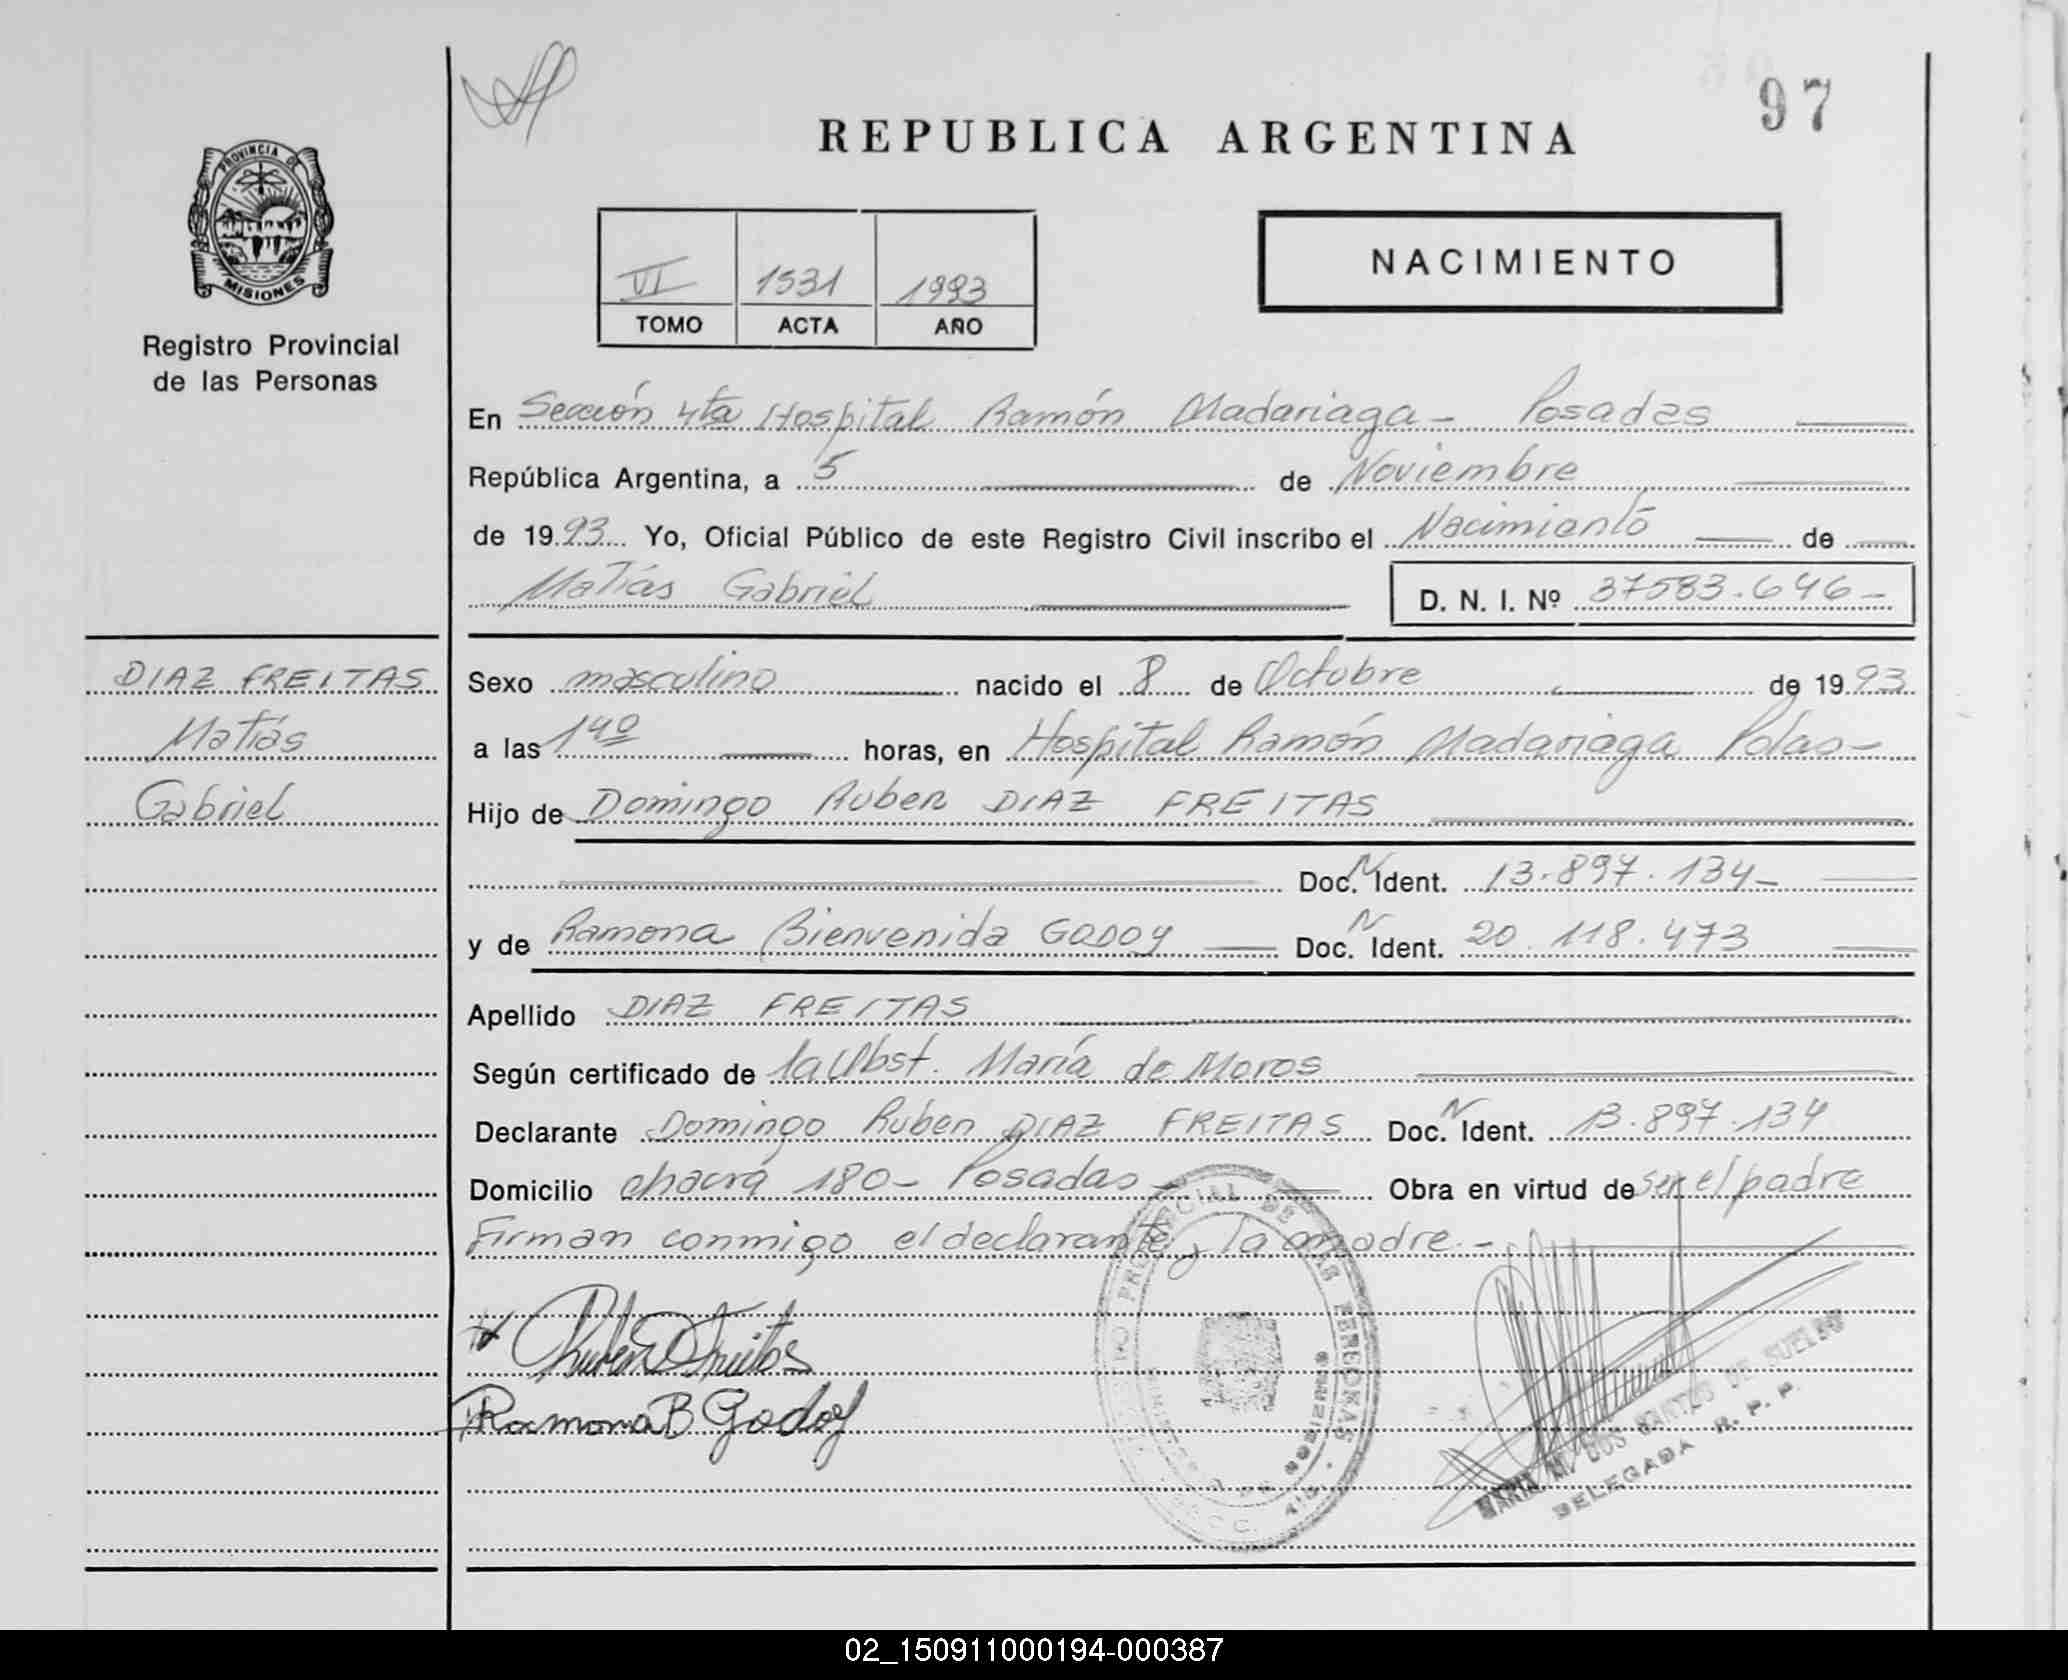 97
REPUBLICA ARGENTINA
PROVINCIA DE
MISIONES
Registro Provincial
de las Personas
NACIMIENTO
VI 1531 1993
TOMO ACTA AÑO
En Sección 4ta Hospital Ramón Madariaga - Posadas
República Argentina, a 5 de Noviembre
de 1993 Yo, Oficial Público de este Registro Civil inscribo el Nacimiento de
Matías Gabriel D. N. I. Nº 37583.646-
DIAZ FREITAS
Matías
Gabriel
Sexo masculino nacido el 8 de Octubre de 1993
a las 14º horas, en Hospital Ramón Madariaga Pdas-
Hijo de Domingo Ruben DIAZ FREITAS
Doc. N Ident. 13.897.134-
y de Ramona Bienvenida GODOY Doc. N Ident. 20.118.473
Apellido DIAZ FREITAS
Según certificado de la Obst. María de Moros
Declarante Domingo Ruben DIAZ FREITAS Doc. N Ident. 13.897.134
Domicilio chacra 180- Posadas - Obra en virtud de ser el padre
Firman conmigo el declarante y la madre.-
Ramona B Godoy
REGISTRO PROVINCIAL DE LAS PERSONAS
MARIA M. DOS SANTOS DE
DELEGADA R. P. P.
02_150911000194-000387